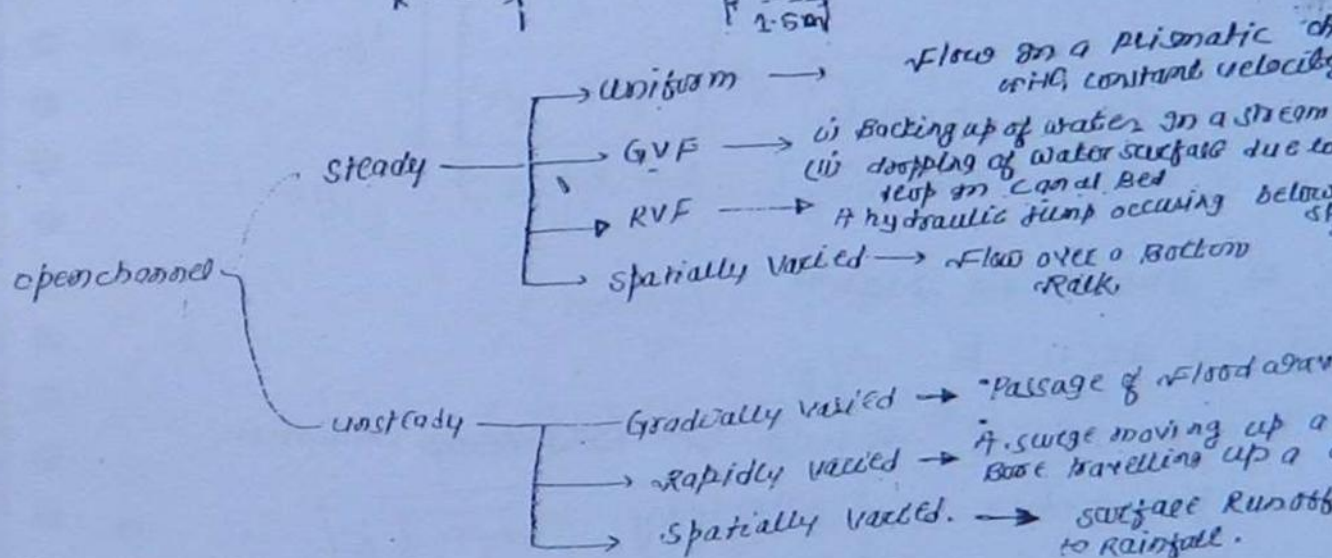 1.5m
Uniform → Flow in a prismatic ch
with constant velocity
steady
GVF → (i) Backing up of water in a stream
(ii) dropping of water surface due to
drop in canal Bed
RVF → A hydraulic jump occuring below
sp
Spatially Varied → Flow over a Bottom
Rack
open channel
unsteady
Gradually varied → Passage of Flood
Rapidly varied → A surge moving up a
Bore travelling up a
Spatially Varied. → surface Runoff
to Rainfall.